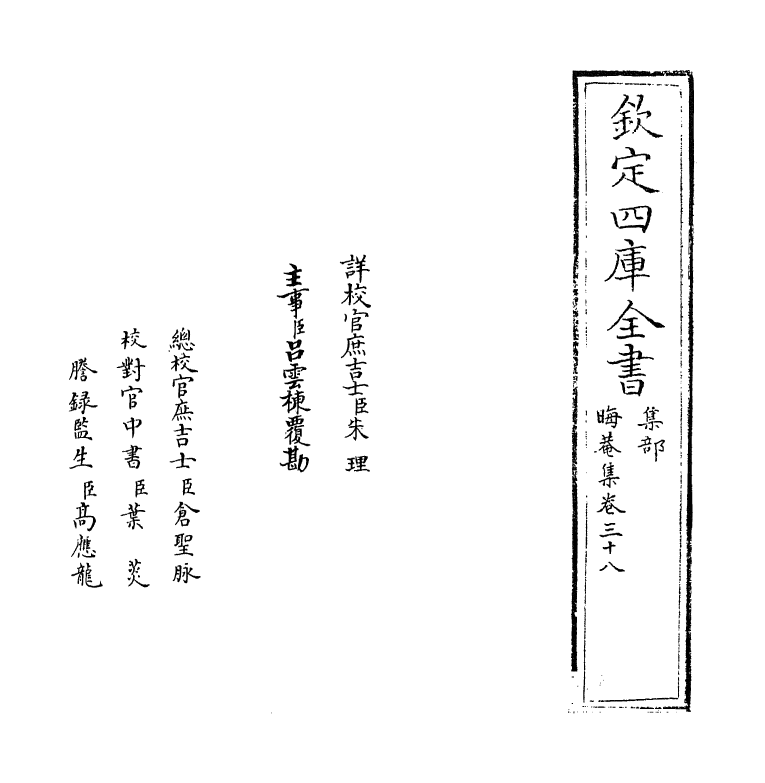 欽定四庫全書
集部
晦菴集卷三十八
詳校官庶吉士臣朱理
主事臣呂雲棟覆勘
總校官庶吉士臣倉聖脉
校對官中書臣葉菼
謄錄監生臣髙應龍